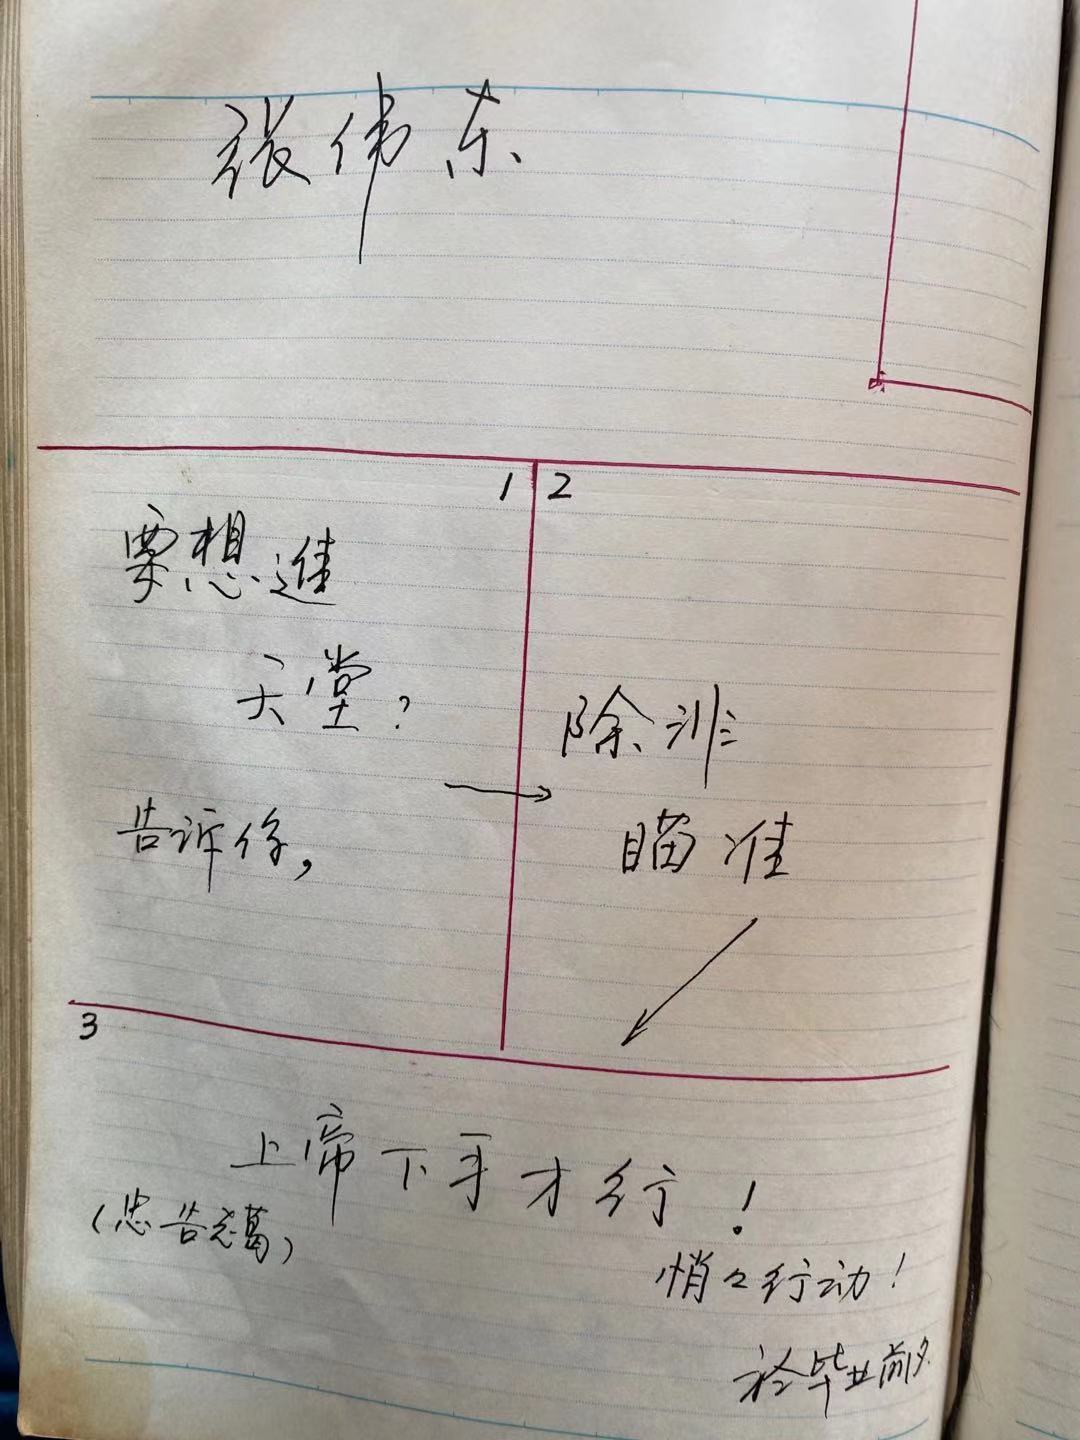 张伟东
1
要想進
天堂?
告诉你,
2
除非
瞄准
3
上帝下手才行!
(忠告志葛)
悄々行动!
於毕业前夕.